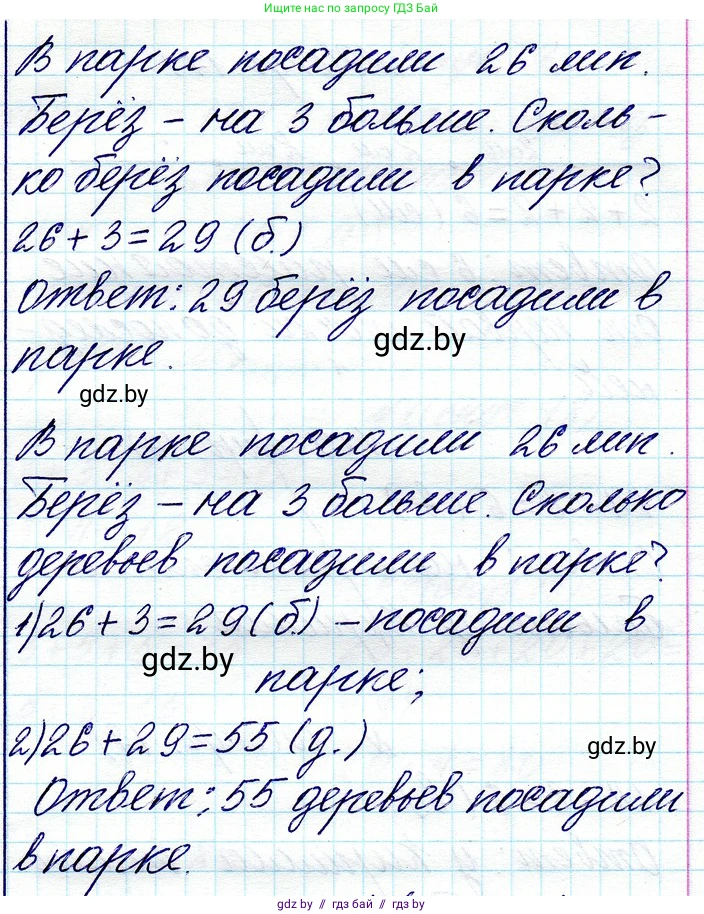 Ищите нас по запросу ГДЗ Бай
В парке посадили 26 лип.
Берёз – на 3 больше. Сколь-
ко берёз посадили в парке?
26 + 3 = 29 (б.)
Ответ: 29 берёз посадили в
парке.
gdz.by
gdz.by
В парке посадили 26 лип.
Берёз – на 3 больше. Сколько
деревьев посадили в парке?
1) 26 + 3 = 29 (б.) – посадили в
парке;
gdz.by
2) 26 + 29 = 55 (д.)
gdz.by
Ответ: 55 деревьев посадили
в парке.
gdz.by // гдз бай // гдз by